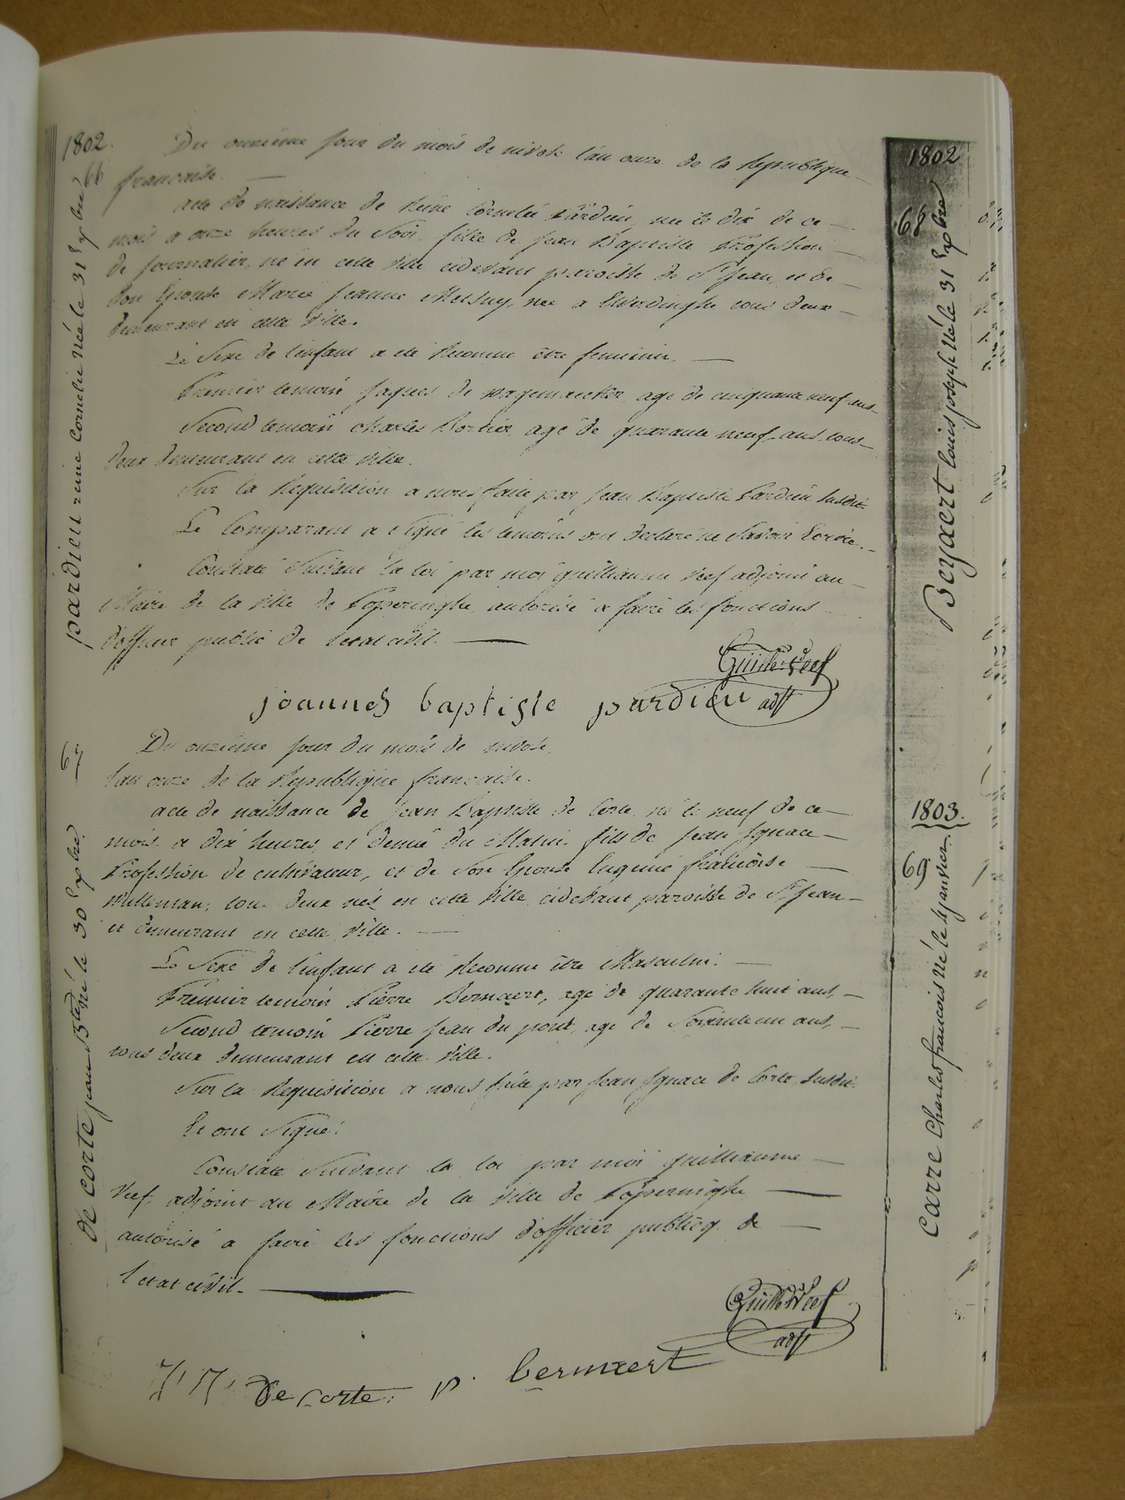 1802.
66
pardieu reine cornelie née le 31 xbre
Du onzième jour du mois de nivose l'an onze de la Republique
francaise.
acte de naissance de Reine Cornelie Pardieu, née le dix de ce
mois a onze heures du Soir, fille de Jean Baptiste Profession
de journalier, né en cette Ville cidevant paroisse de St Jean, et de
Son Epouse Marie Jeanne née a Elverdinghe tous deux
demeurant en cette Ville.
Le Sexe de l'enfant a eté Reconnu être feminin.
Premier temoin Jaques de Wagemaecker, age de cinquante neuf ans
Second temoin Charles agé de quarante neuf ans tous
deux demeurant en cette Ville.
Sur la Requisition a nous faite par Jean Baptiste Pardieu Susdit
Le Comparant a Signé les temoins ont declaré ne Savoir Ecrire.
Constaté Suivant la loi par moi guilliaume Veef adjoint au
Maire de la Ville de Poperinghe autorisé a faire les fonctions
d'officier public de l'etat civil.
Guille Veef
adjt
joannes baptiste pardieu
67
de corte jean Bte né le 30 xbre
Du onzième jour du mois de nivose
l'an onze de la Republique francaise.
acte de naissance de Jean Baptiste de Corte né le neuf de ce
mois a dix heures et demie du Matin fils de Jean Ignace
Profession de cultivateur, et de Son Epouse Eugenie francoise
Milleman, tous deux nés en cette Ville cidevant paroisse de St Jean
et demeurant en cette Ville.
Le Sexe de l'enfant a eté Reconnu être Masculin.
Premier temoin Pierre Bernaert, age de quarante huit ans,
Second temoin Pierre Jean du pont, age de ans,
tous deux demeurant en cette Ville.
Sur la Requisition a nous faite par Jean Ignace de Corte Susdit
Et ont Signé:
Constaté Suivant la loi par moi guilliaume
Veef adjoint au Maire de la Ville de Poperinghe
autorisé a faire les fonctions d'officier publicq de
l'etat civil.
Guille Veef
adjt
De Corte. p. bernaert
1802
68
Beyaert louis joseph né le 31 xbre
1803.
69
Carre Charles francois né le 4 janvier